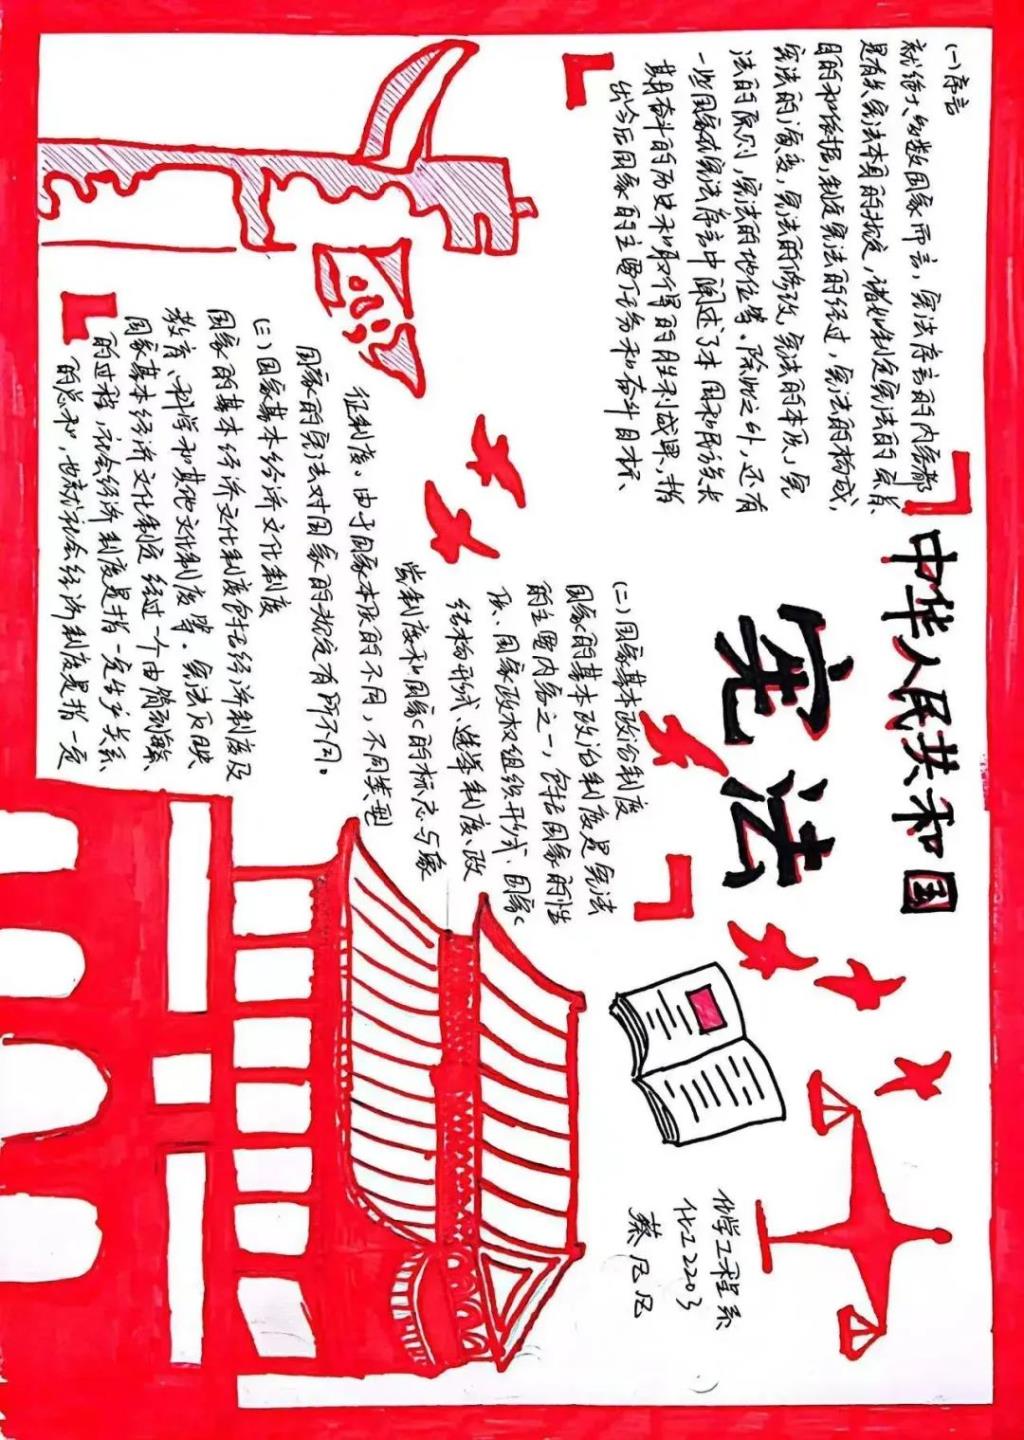 中华人民共和国
宪法
(一)序言
就绝大多数国家而言，宪法序言的内容都
是有关宪法本身的规定，诸如制定宪法的宗旨、
目的和依据，制定宪法的经过，宪法的构成，
宪法的演变，宪法的修改，宪法的本质，宪
法的原则，宪法的地位等。除此之外，还有
一些国家在宪法序言中阐述了本国和民族长
期奋斗的历史和取得的胜利成果，指
出今后国家的主要任务和奋斗目标、
(二)国家基本政治制度
国家的基本政治制度是宪法
的主要内容之一，包括国家的性
质、国家政权组织形式、国家
结构形式、选举制度、政
党制度和国家的标志与象
征制度。由于国家本质的不同，不同类型
国家的宪法对国家的规定有所不同。
(三)国家基本经济文化制度
国家的基本经济文化制度包括经济制度及
教育、科学和其他文化制度等。宪法反映
国家基本经济文化制度经过一个由简到繁
的过程，社会经济制度是指一定生产关系
的总和，也就社会经济制度是指一定
化学工程系
化工2203
蔡凡凡